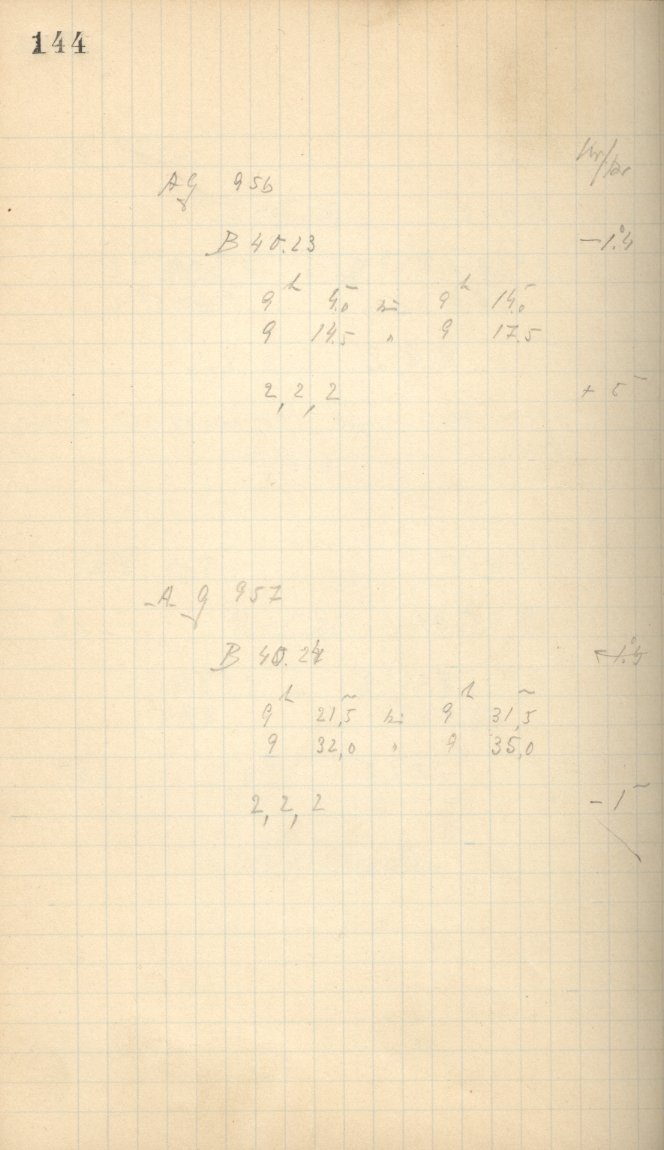 144
AG 956
B 40.23 −1°.4
9h 4,0m bis 9h 14,0m
9 14.5 " 9 17.5
2, 2, 2 + 5m
AG 957
B 40.24
9h 21,5m bis 9h 31,5m
9 32,0 " 9 35,0
2, 2, 2 − 1m